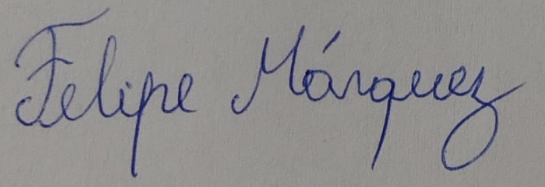 Felipe Márquez